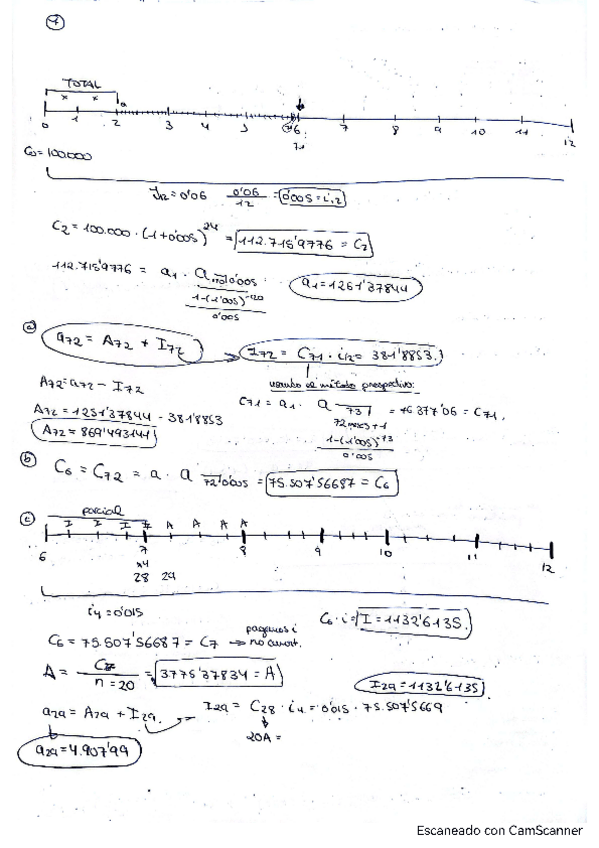 7
TOTAL
x x
0 1 2 3 4 5 6 7 8 9 10 11 12
71
C0 = 100.000
J12 = 0'06 0'06/12 = 0'005 = i12
C2 = 100.000 · (1+0'005)^24 = 112.715'9776 = C2
112.715'9776 = a1 · a 120 0'005 a1 = 1251'37844
1-(1'005)^-120
0'005
a) a72 = A72 + I72 I72 = C71 · i12 = 381'8853.
A72 = a72 - I72 usando el método prospectivo:
C71 = a1 · a 73 = 76377'06 = C71.
A72 = 1251'37844 - 381'8853 72 meses + 1
A72 = 869'493141 1-(1'005)^-73
0'005
b) C6 = C72 = a · a 72 0'005 = 75.507'56687 = C6
c) parcial
I I I I A A A A
6 7 8 9 10 11 12
x4
28 29
i4 = 0'015 C6 · i = I = 1132'6135.
C6 = 75.507'56687 = C7 → pagamos i
no amort.
A = C28/n=20 = 3775'37834 = A I29 = 1132'6135
a29 = A29 + I29 → I29 = C28 · i4 = 0'015 · 75.507'5669
20A =
a29 = 4.907'99
Escaneado con CamScanner